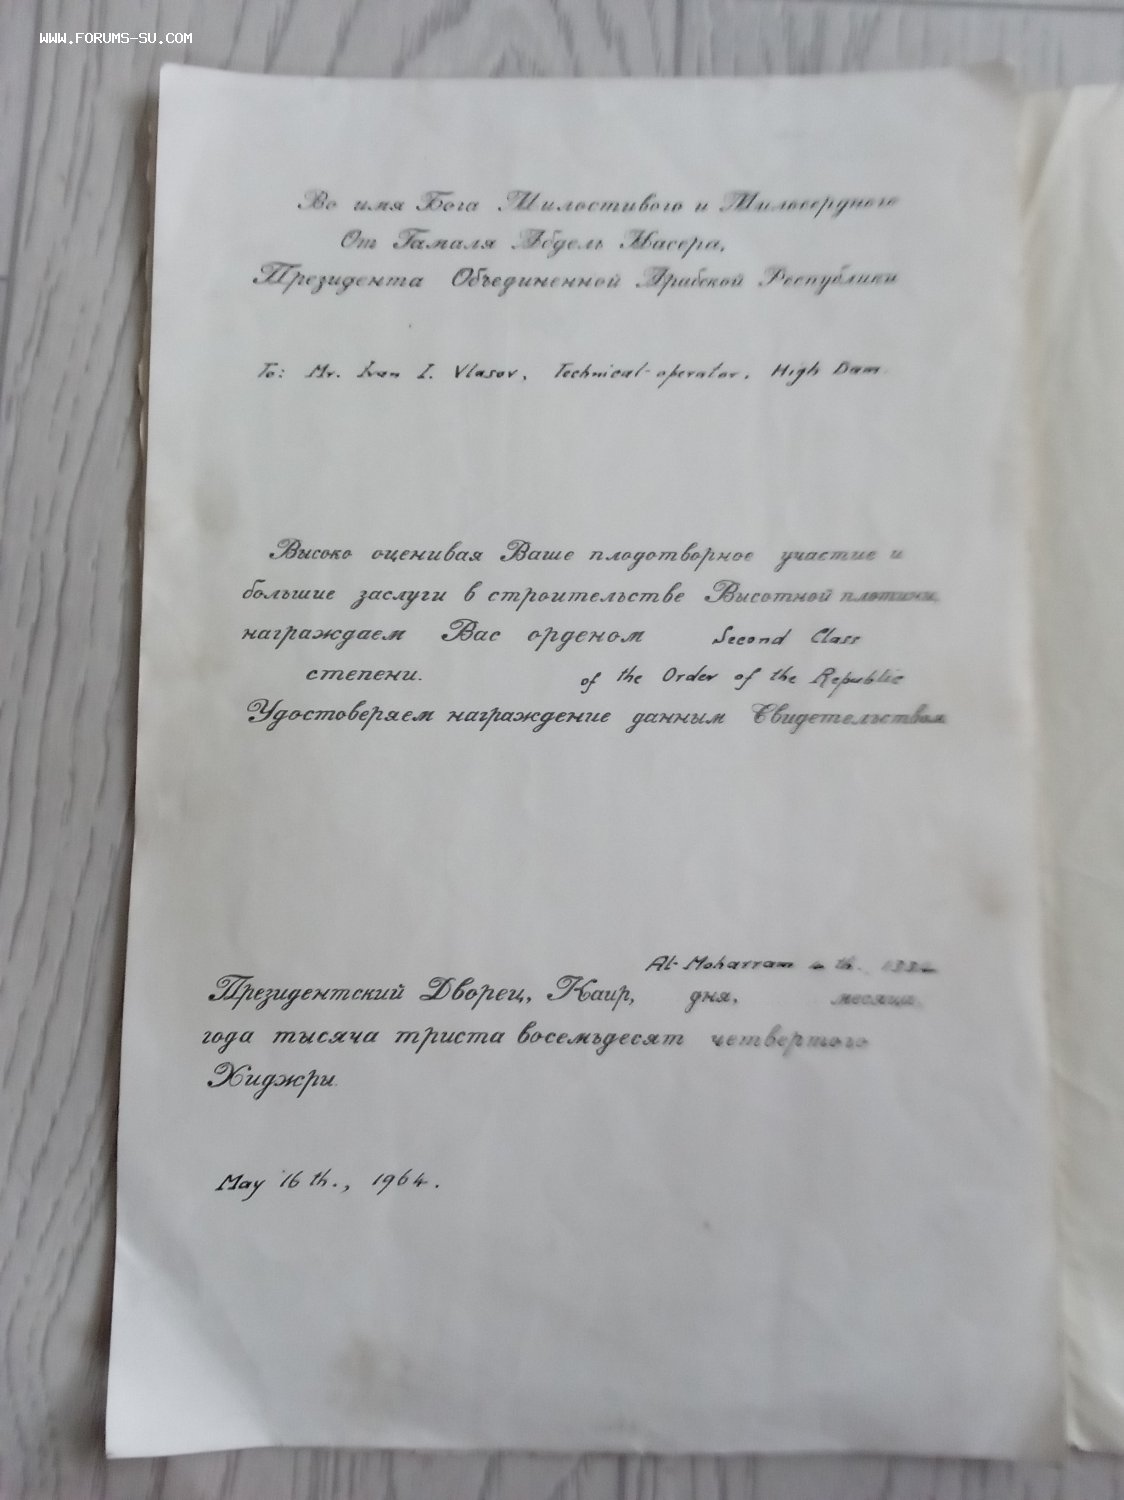 WWW.FORUMS-SU.COM
Во имя Бога Милостивого и Милосердного
От Гамаля Абдель Насера,
Президента Объединенной Арабской Республики
To: Mr. Ivan I. Vlasov, Technical-operator, High Dam.
Высоко оценивая Ваше плодотворное участие и
большие заслуги в строительстве Высотной плотины,
награждаем Вас орденом Second Class
степени. of the Order of the Republic
Удостоверяем награждение данным Свидетельством
Al-Moharram th.,
Президентский Дворец, Каир, дня, месяца,
года тысяча триста восемьдесят четвертого
Хиджры.
May 16th., 1964.